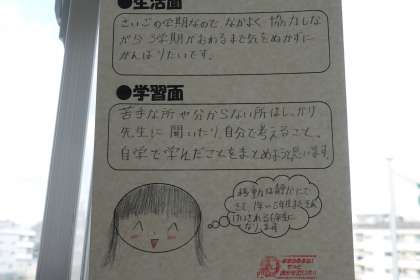 ●生活面
さいごの学期なので、なかよく協力しな
がら3学期がおわるまで気をぬかずに
がんばりたいです。
●学習面
苦手な所や分からない所はしっかり
先生に聞いたり、自分で考えること。
自学で学んだことをまとめようと思います。
移動は静かにで
になります